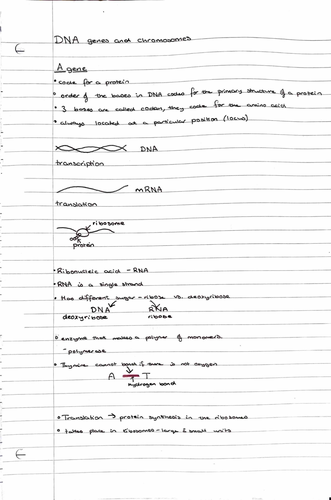 DNA genes and chromosomes
A gene
• code for a protein
• order of the bases in DNA codes for the primary structure of a protein
• 3 bases are called codon, they code for the amino acids
• always located at a particular position (locus)
DNA
transcription
mRNA
translation
ribosome
protein
• Ribonucleic acid - RNA
• RNA is a single strand
• Has different sugar - ribose vs. deoxyribose
DNA RNA
deoxyribose ribose
• enzyme that makes a polymer of monomers
- polymerase
• Thymine cannot bond if there is not oxygen
A T
hydrogen bond
• Translation → protein synthesis in the ribosomes
• takes place in ribosomes - large & small units